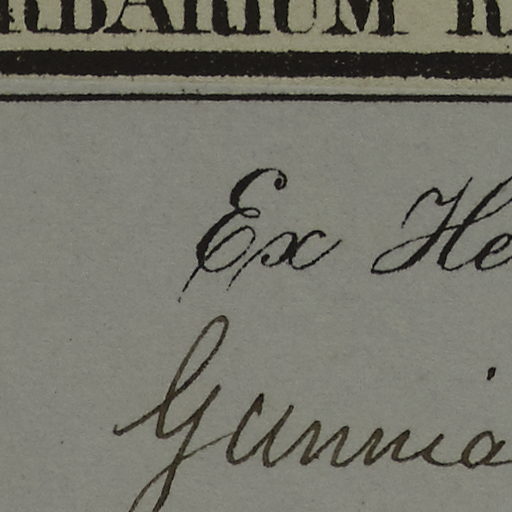 HERBARIUM R
Ex He
Gunnia